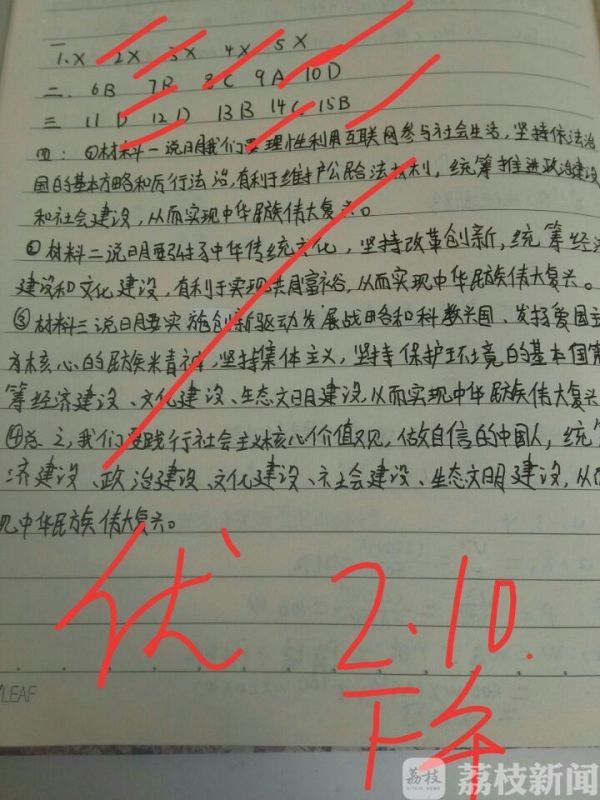 一
1.X 2X 3X 4X 5X
二. 6B 7B 8C 9A 10D
三 11 D 12 D 13B 14C 15B
四: ①材料一说明我们要理性利用互联网参与社会生活, 坚持依法治
国的基本方略和厉行法治, 有利于维护公民合法权利, 统筹推进政治建设
和社会建设, 从而实现中华民族伟大复兴。
②材料二说明要弘扬中华传统文化, 坚持改革创新, 统筹经济
建设和文化建设, 有利于实现共同富裕, 从而实现中华民族伟大复兴。
③材料三说明要实施创新驱动发展战略和科教兴国、发扬爱国主
为核心的民族精神, 坚持集体主义, 坚持保护环境的基本国
筹经济建设、文化建设、生态文明建设, 从而实现中华民族伟大复兴
④总之, 我们要践行社会主义核心价值观, 做自信的中国人, 统
济建设、政治建设、文化建设、社会建设、生态文明建设, 从
现中华民族伟大复兴。
优 2.10.
下午
LEAF
荔枝
荔枝新闻